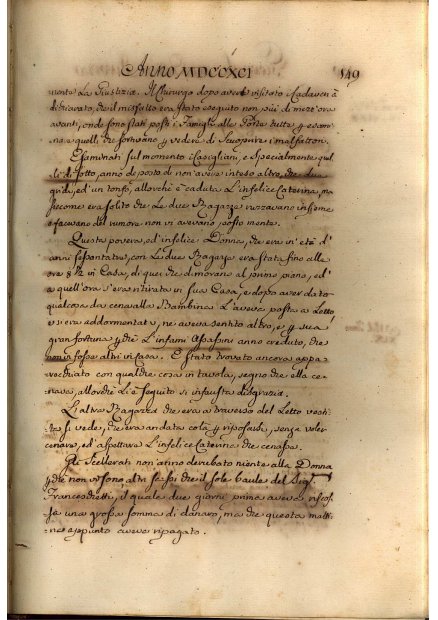 Anno MDCCXCI
149
mente La Giustizia. Il Chirurgo dopo aver visitato i Cadaveri à
dichiarato, che il misfatto era stato eseguito non più di mezz'ora
avanti, onde sono stati posti i Famigli alle Porte tutte
e quelli, che sortivano vedere di scuoprire i malfattori.
Esaminati sul momento i Casigliani, e specialmente quel-
li di sotto, anno deposto di non aver inteso altro, che due
grida, ed un tonfo, allorchè è caduta L'infelice Caterina, ma
siccome era solito che Le due Ragazze ruzzavano insieme
e facevano del rumore non vi avevano posto mente.
Questa povera, ed infelice Donna, che era in età d'
anni sessantatre, con Le due Ragazze era stata fino alle
ore 8 ½ in Casa, di quei che dimorano al primo piano, ed
a quell'ora s'era ritirata in sua Casa, e dopo aver dato
qualcosa da cena alla Bambina L'aveva posta a Letto,
e si era addormentata, ne aveva sentito altro, e sua
gran fortuna che L'infami Assassini anno creduto, che
non fosse altri in casa. È stato trovato ancora appa-
recchiato con qualche cosa in tavola, segno che ella ce-
nava, allorchè Li è seguito sì infausta disgrazia.
L'altra Ragazza che era a traverso del Letto vesti-
ta si vede, che era andata colà riposarsi, senza voler
cenare, ed aspettare L'infelice Caterina che cenasse.
Gli Scellerati non anno derubato niente alla Donna
che non vi sono altri che il solo baule del Sig.
Franceschetti, il quale due giorni prima aveva riscos-
sa una grossa somma di danaro, ma che questa matti-
na appunto aveva ripagato.